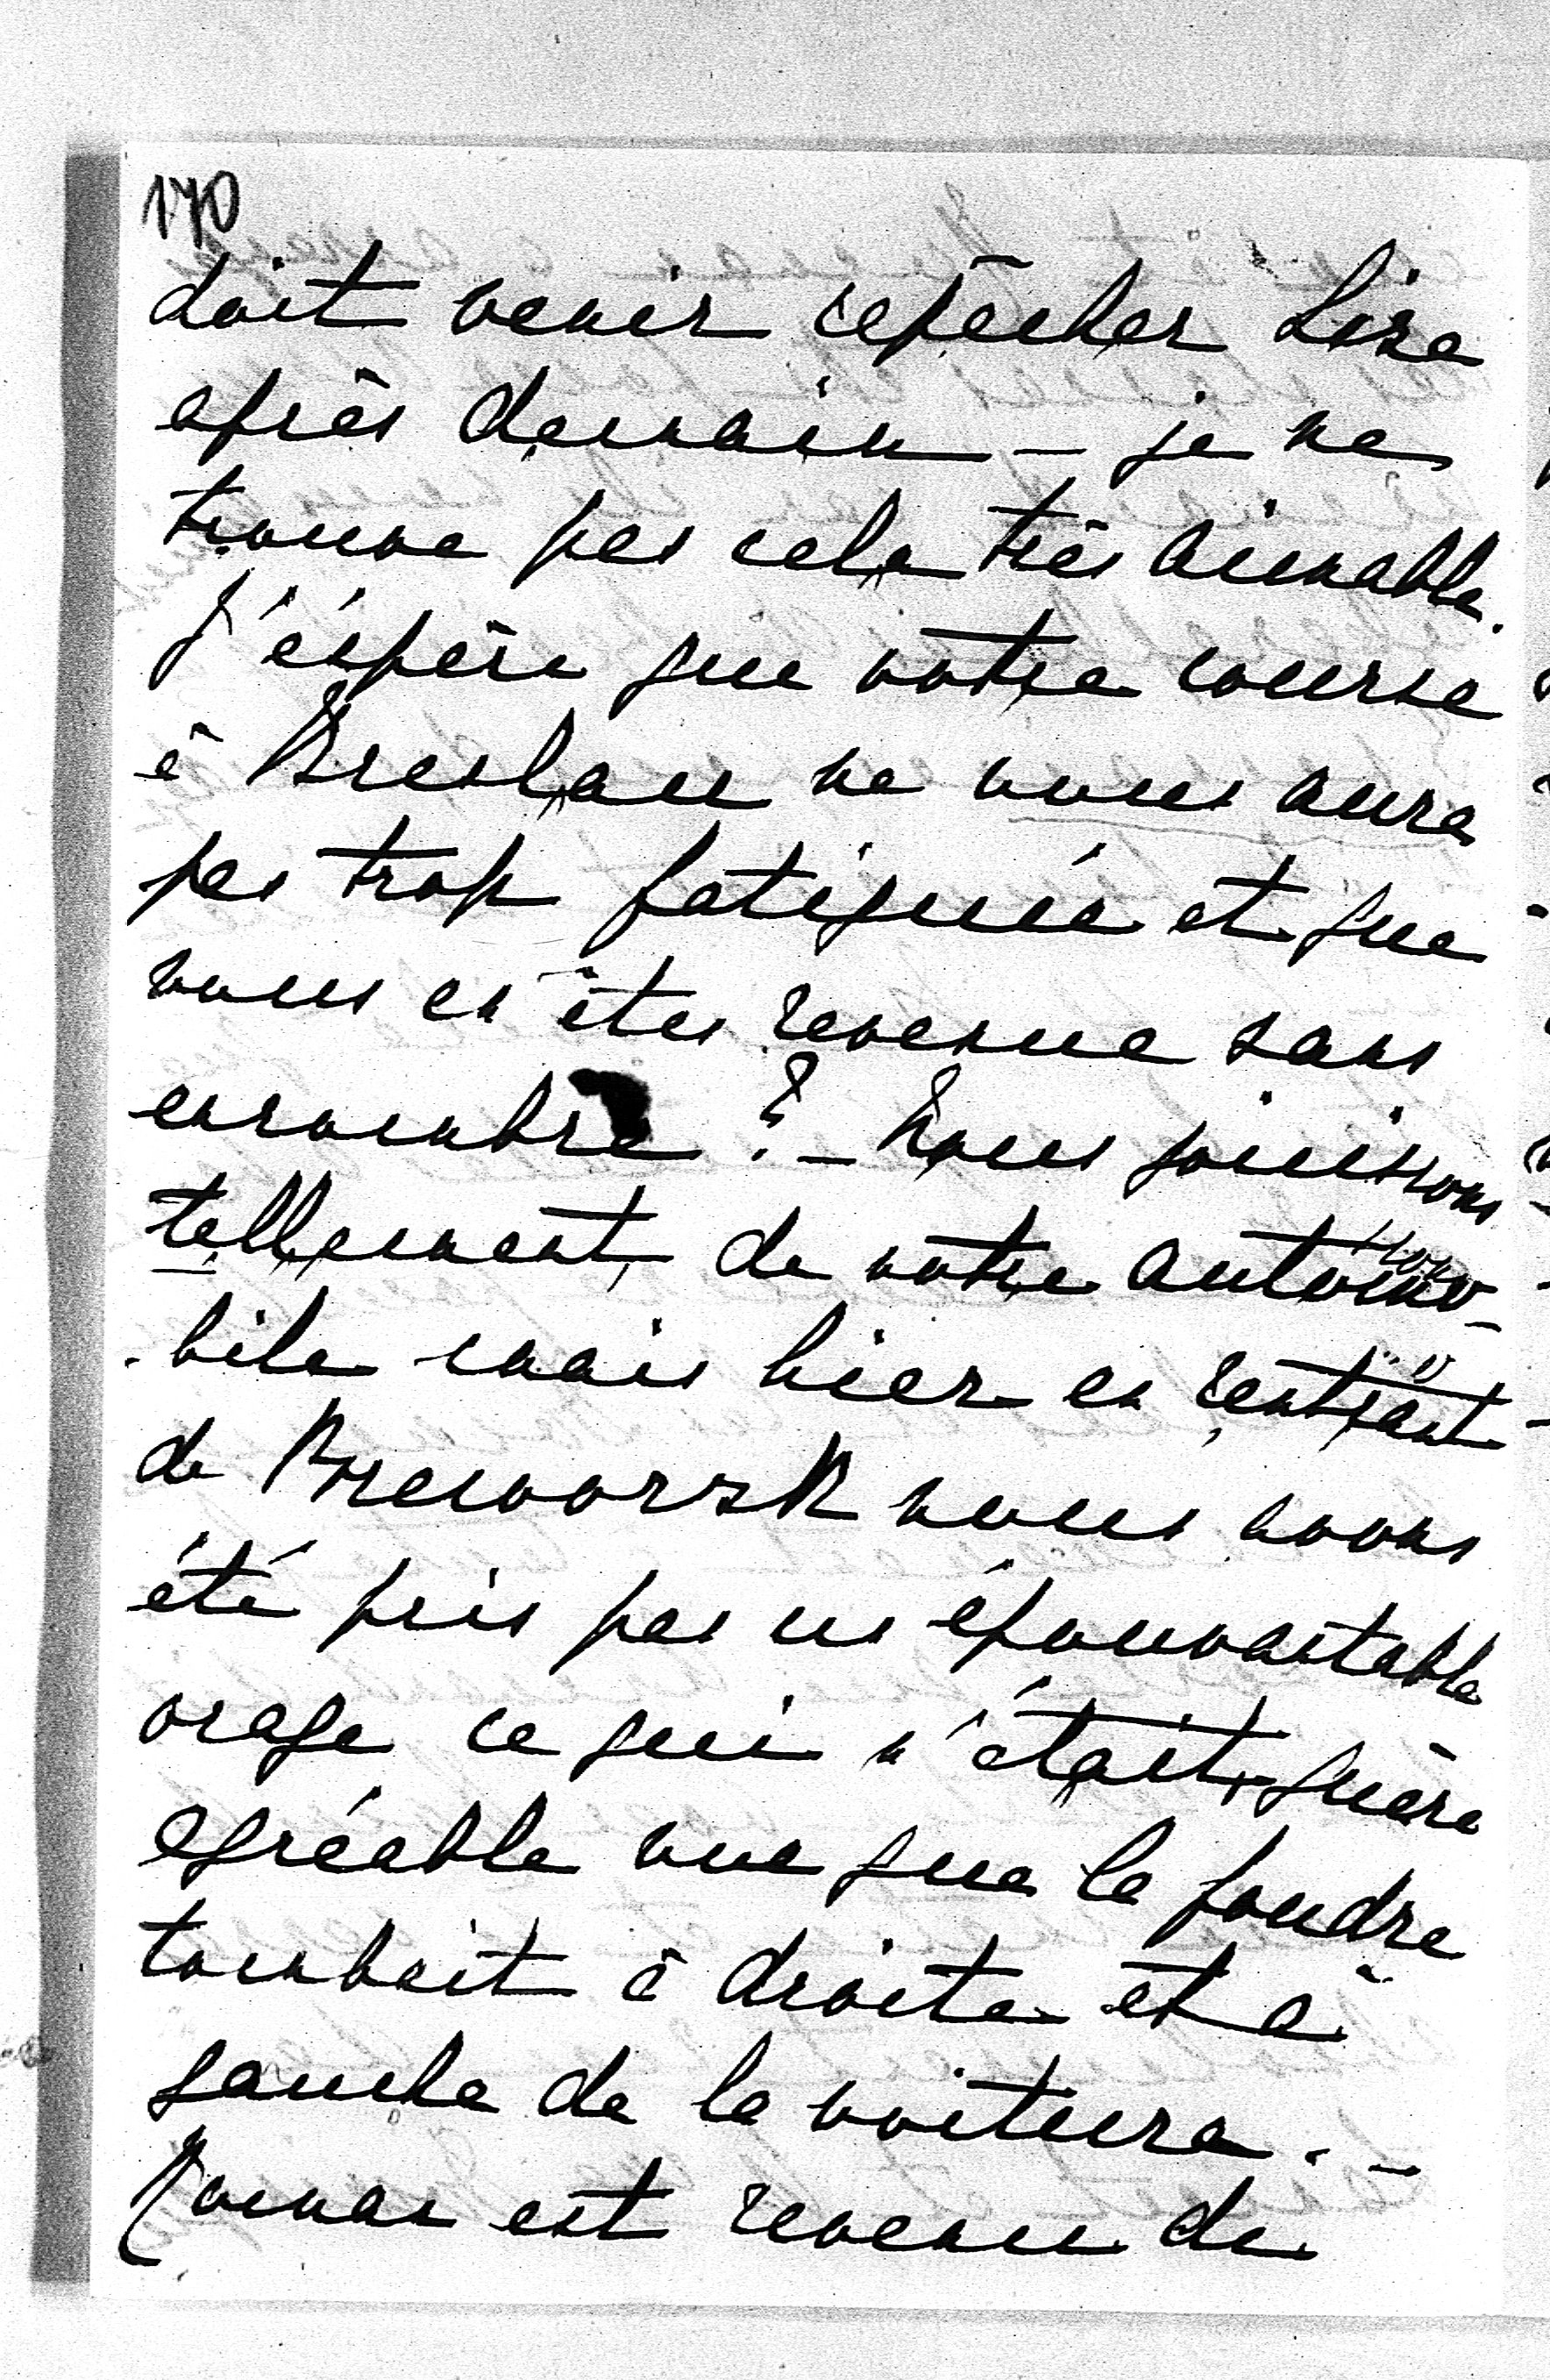 170
doit venir repêcher Lise
après demain – je ne
trouve pas cela très aimable.
J'éspère que votre course
à Breslau ne vous aura
pas trop fatiguée et que
vous en êtes revenue sans
encombre ? – Nous jouissons
tellement de notre automo-
-bile mais hier en rentrant
de Przeworsk nous avons
été pris par un épouvantable
orage ce qui n'était guère
agréable vue que la foudre
tombait à droite et à
gauche de la voiture. –
Roman est revenu de